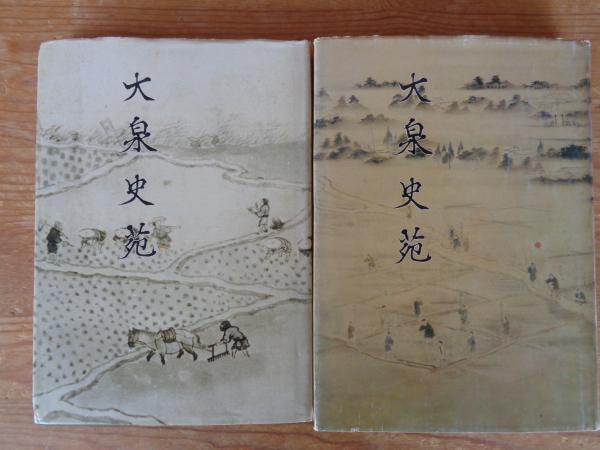 大泉史苑
大泉史苑